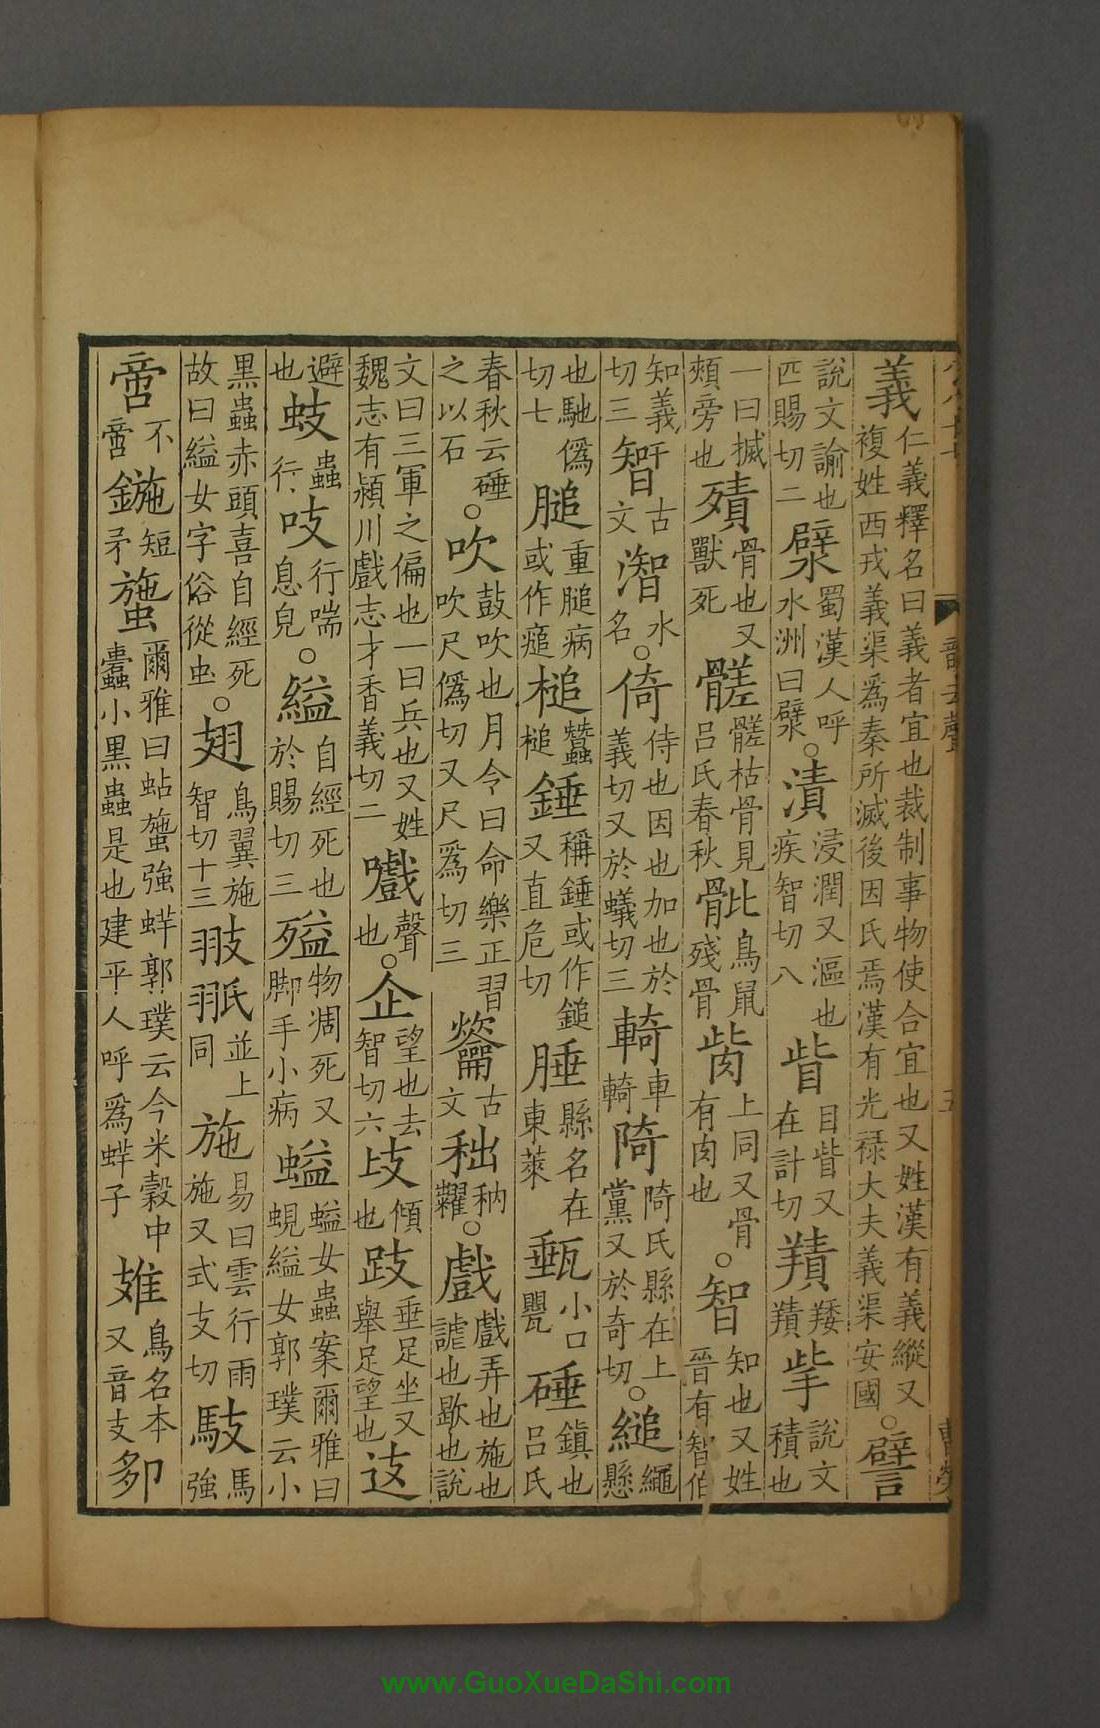 義仁義釋名曰義者宜也裁制事物使合宜也又姓漢有義縱又複姓西戎義渠爲秦所滅後因氏焉漢有光祿大夫義渠安國○譬
說文諭也匹賜切二㵨蜀漢人呼水洲曰㵨○漬浸潤又漚也疾智切八眥目眥又在計切䍤䍴䍤㧘說文積也
一曰搣頰旁也㱴骨也又獸死髊髊枯骨見呂氏春秋骴鳥鼠殘骨胔上同又骨有肉也○智知也又姓晉有智伯
知義切三𥏼古文潪水名○倚侍也因也加也於義切又於蟻切三輢車輢陭陭氏縣在上黨又於奇切○縋繩懸
也馳僞切七膇重膇病或作㾽槌蠶槌錘稱錘或作鎚又直危切腄縣名在東萊甀小口甖硾鎮也呂氏
春秋云硾之以石○吹鼓吹也月令曰命樂正習吹尺僞切又尺爲切三龡古文○戲戲弄也施也謔也歇也說
文曰三軍之偏也一曰兵也又姓魏志有潁川戲志才香義切二嚱聲也○企望也去智切六攱傾也跂垂足坐又舉足望也
避也蚑蟲行吱行喘息皃○縊自經死也於賜切三物凋死又脚手小病螠螠女蟲案爾雅曰蜆縊女郭璞云小
黑蟲赤頭喜自經死故曰縊女字俗從虫○翅鳥翼施智切十三翄翨並上同施易曰雲行雨施又式支切馶馬強
啻不啻鍦短矛䗐爾雅曰蛅䗐強蛘郭璞云今米穀中蠹小黑蟲是也建平人呼爲蛘子䧴鳥名本又音支
韻去聲
五
www.GuoXueDaShi.com